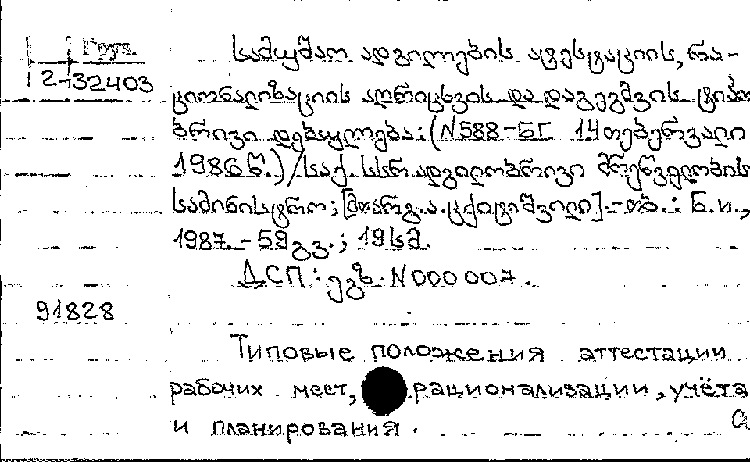 Груз.
2-32403
სამუშაო ადგილების ატესტაციის, რა-
ციონალიზაციის აღრიცხვის და დაგეგმვის ტიპო
ბრივი დებულება: (N588-БГ 14 თებერვალი
1986წ.)/საქ. სსრ ადგილობრივი მრეწველობის
სამინისტრო; [მთარგ. ა. ცქიტიშვილი].-თბ.: Б.и.,
1987.-59გვ.; 19სმ.
ДСП: ეგზ. N000007.
91828
Типовые положения аттестации
рабочих мест, рационализации, учёта
и планирования.